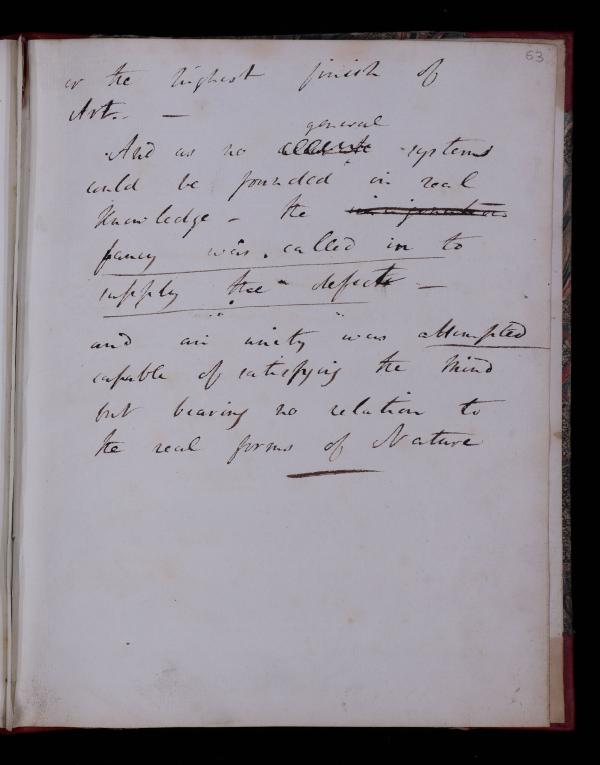 63
or the highest finish of
Art. —
general
And as no accurate systems
could be founded on real
Knowledge – the imagination
fancy was called in to
supply the defect —
and an unity was attempted
capable of satisfying the Mind
but bearing no relation to
the real forms of Nature